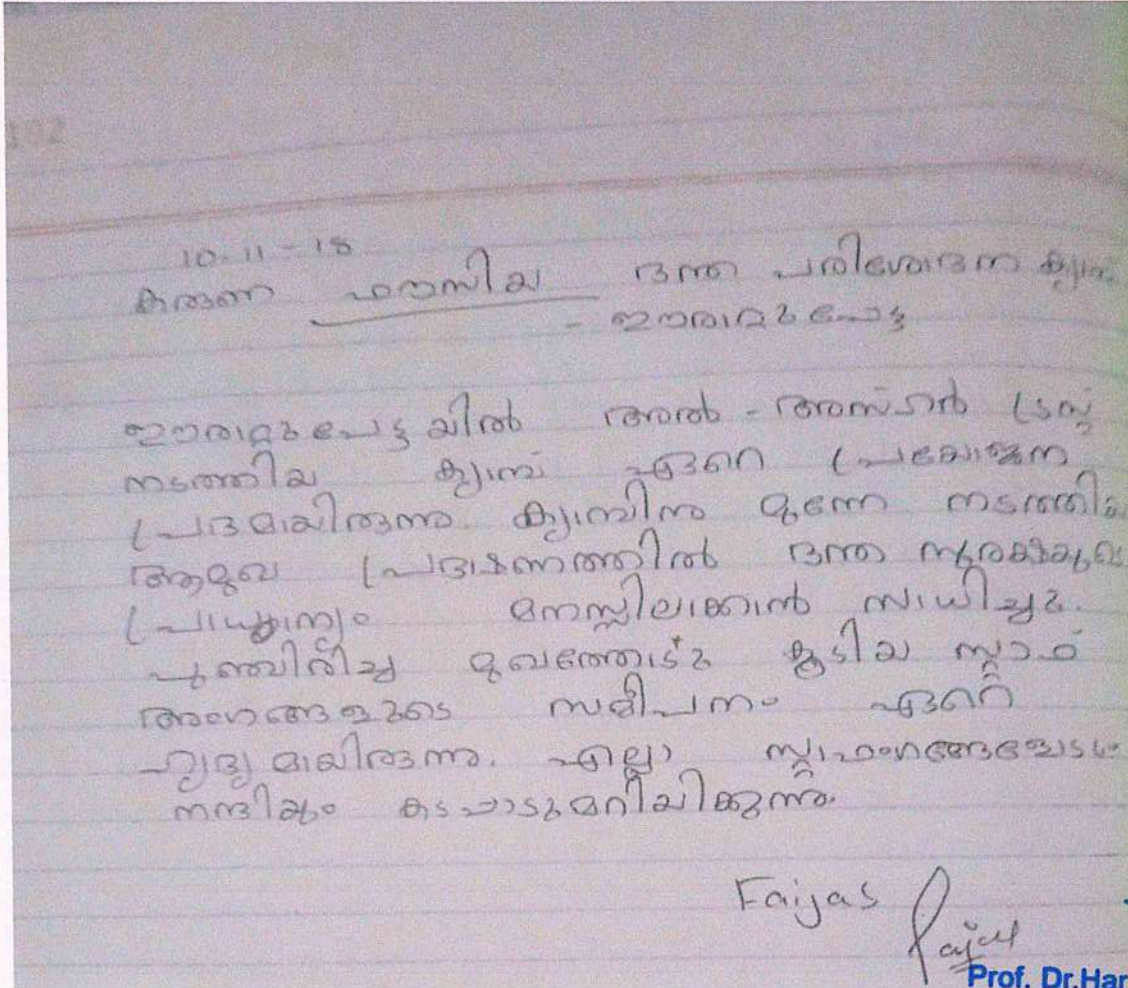 102
10-11-18
കരുണ ഫൗസിയ ദന്ത പരിശോദന ക്യാമ്പ്
- ഈരാറ്റുപേട്ട
ഈരാറ്റുപേട്ടയിൽ അൽ-അസ്ഹർ ട്രസ്റ്റ്
നടത്തിയ ക്യാമ്പ് ഏറെ പ്രയോജന
പ്രദമായിരുന്നു ക്യാമ്പിനു മുന്നേ നടത്തിയ
ആമുഖ പ്രഭാഷണത്തിൽ ദന്ത സുരക്ഷയുടെ
പ്രാധാന്യം മനസ്സിലാക്കാൻ സാധിച്ചു.
പുഞ്ചിരിച്ച മുഖത്തോടു കൂടിയ സ്റ്റാഫ്
അംഗങ്ങളുടെ സമീപനം ഏറെ
ഹൃദ്യമായിരുന്നു. എല്ലാ സ്റ്റാഫംഗങ്ങളോടും
നന്ദിയും കടപ്പാടുമറിയിക്കുന്നു.
Faijas
Prof. Dr.Har